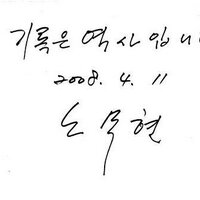 기록은 역사입니
2008. 4. 11
노무현